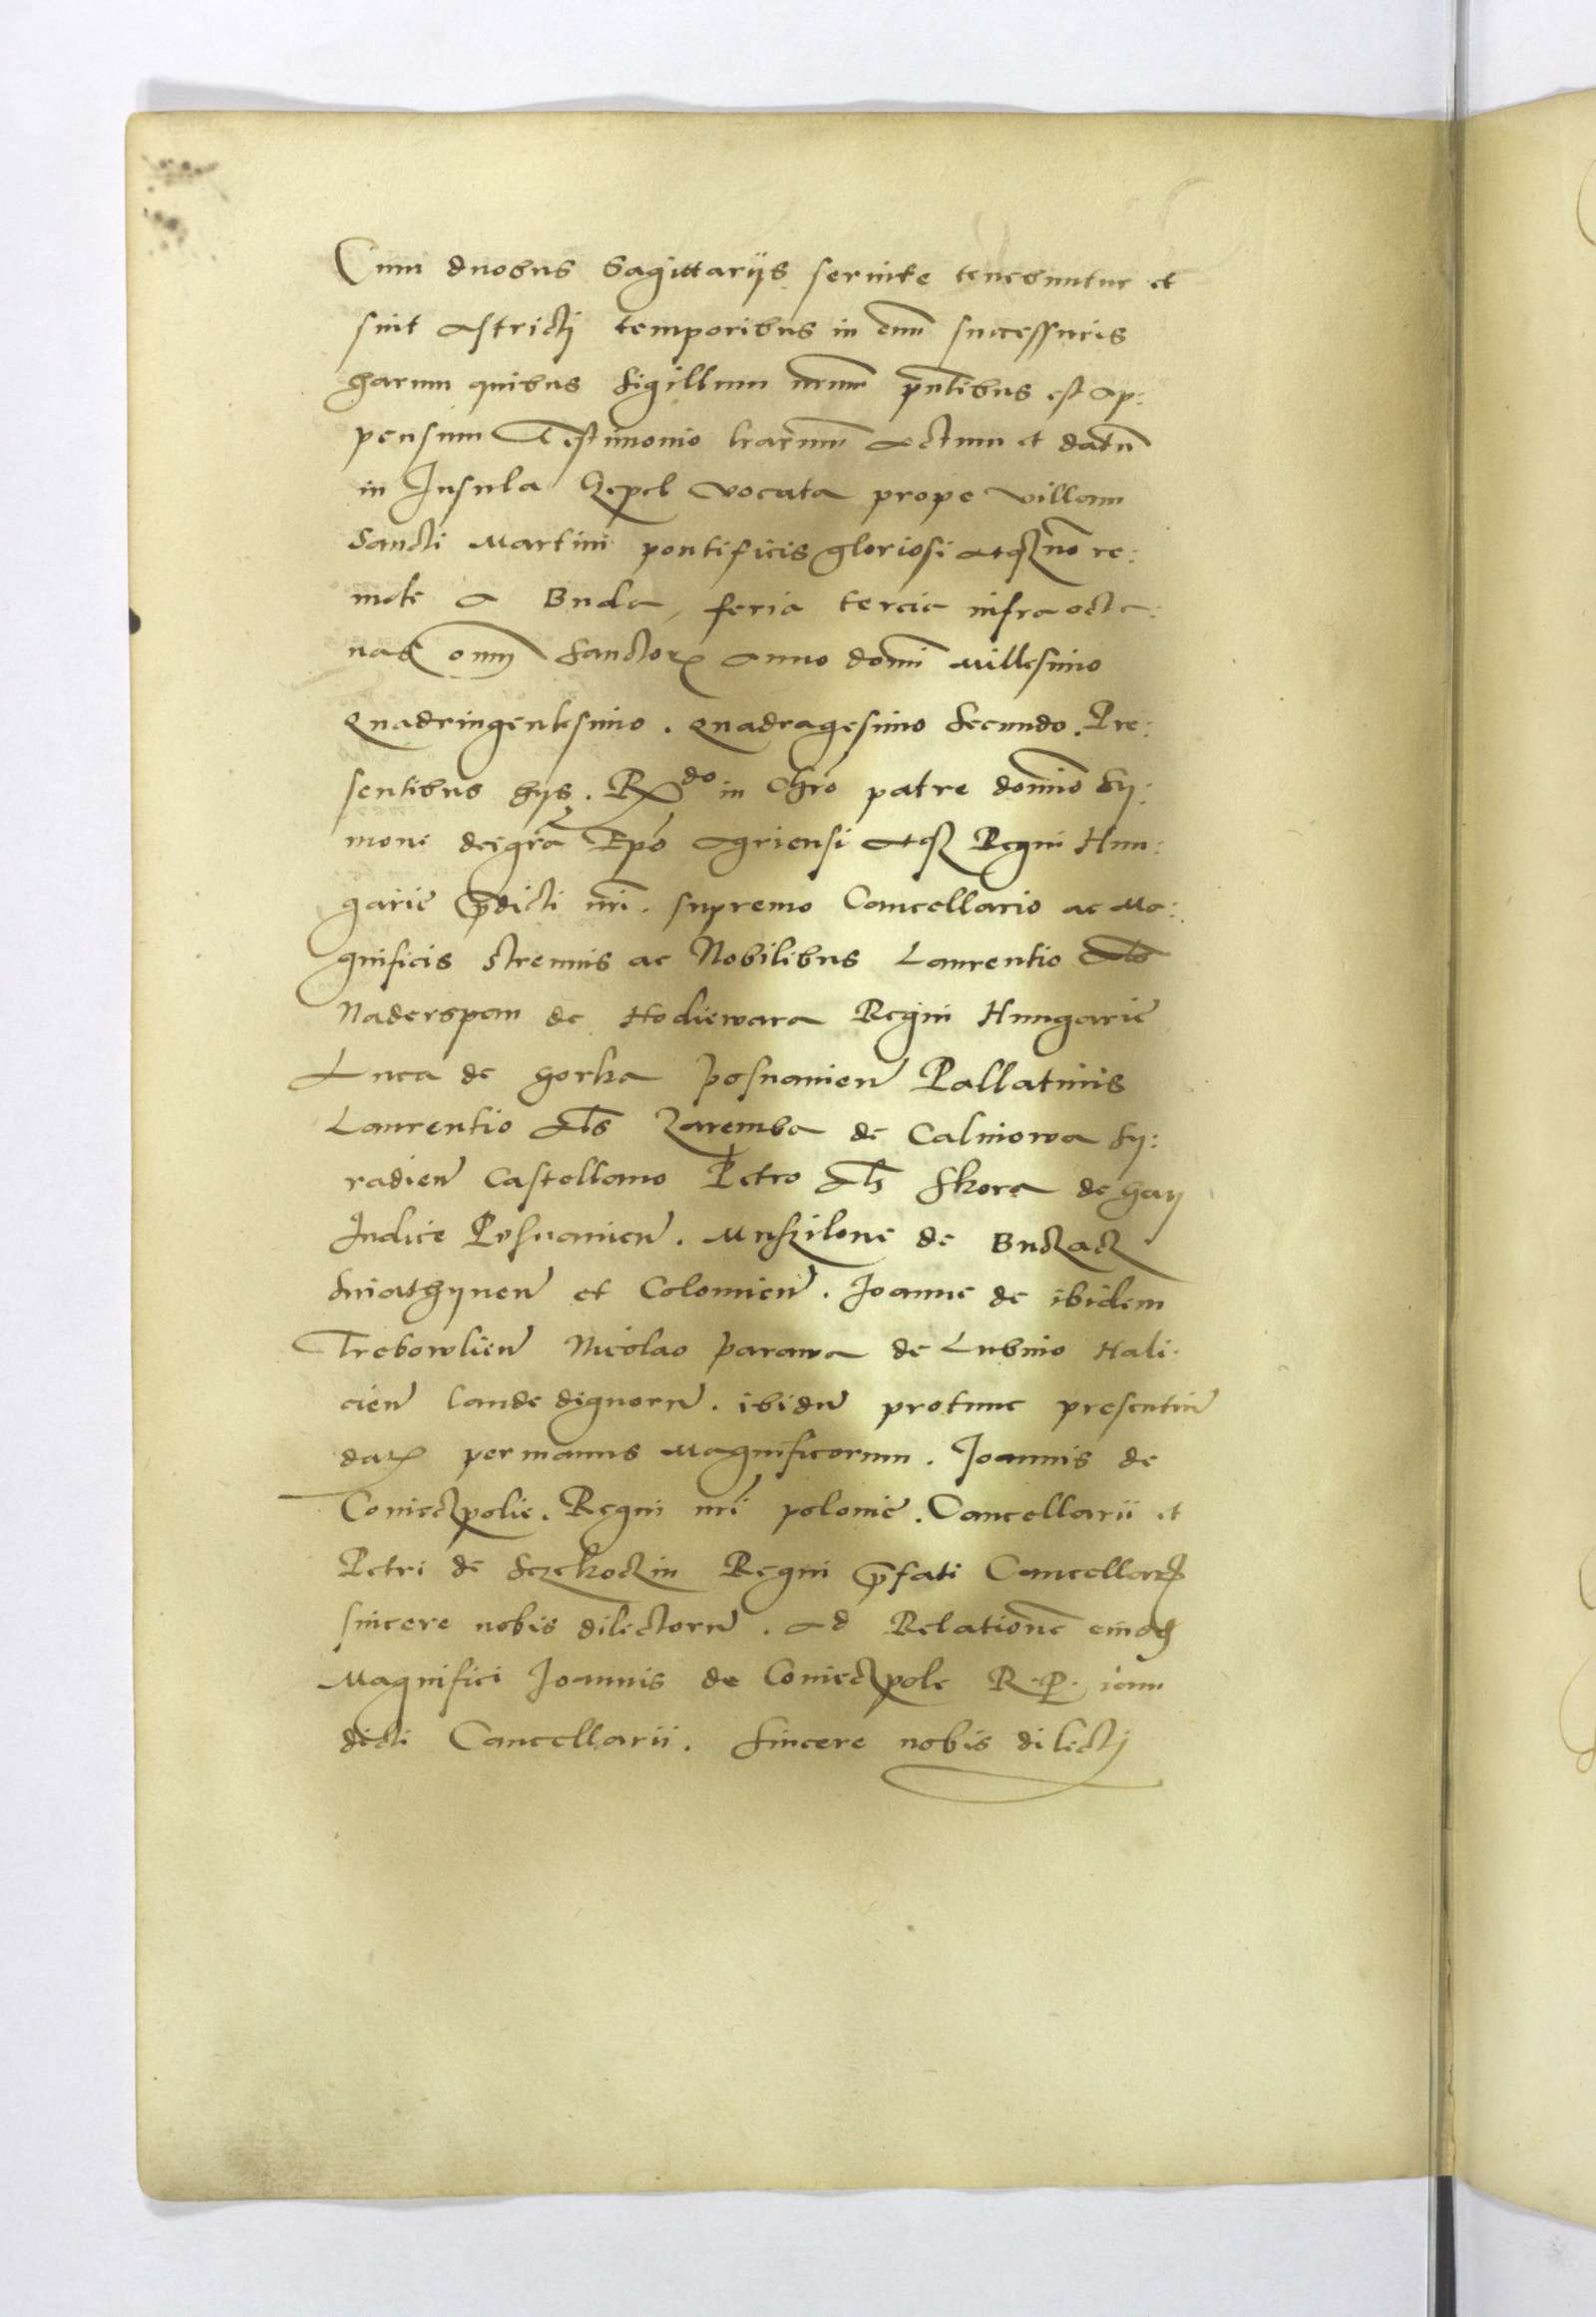 Cum duobus Sagittariis seruire tenebuntur et
sint astricti temporibus in euũ successuris
harum quibus Sigillum nrũm pñtibus est ap:
pensum Testimonio lrarum Actum et datũ
in Insula Czepel vocata prope villam
Sancti Martini pontificis gloriosi atqꝫ nõ re:
mote a Buda, feria tercia infra octa:
uas oñij Sanctoꝝ Anno domĩ Millesimo
Quadringentesimo. Quadragesimo Secundo. Pre:
sentibus hys. Rxdo in Chrõ patre domĩo Sy:
mone dei grã Epõ Agriensi atqꝫ Regni Hun:
garie p̃dicti nr̃i. supremo Cancellario ac Ma:
gnificis Strenuis ac Nobilibus Laurentio
Naderspan de Hodiewara Regni Hungarie
Luca de gorka posnanieñ Pallatinis
Laurentio als Zaremba de Calinowa Sy:
radieñ Castellano Petro als Skora de gay
Iudice Posnanieñ. Muszilone de Buczacz
Sniathyneñ et Colomieñ. Joanne de ibidem
Trebowlieñ Nicolao parawa de Lubino Hali:
cieñ laude dignorũ. ibidẽ protunc presentiũ
daꝝ per manus Magnificorum. Joannis de
Conieczpolie. Regni nr̃i polonie. Cancellarii et
Petri de Sczekoczin Regni p̃fati Cancellarij
sincere nobis dilectorũ. ad Relationẽ eiusdẽ
Magnifici Joannis de Conieczpole R. P. iam
dicti Cancellarii. Sincere nobis dilecti